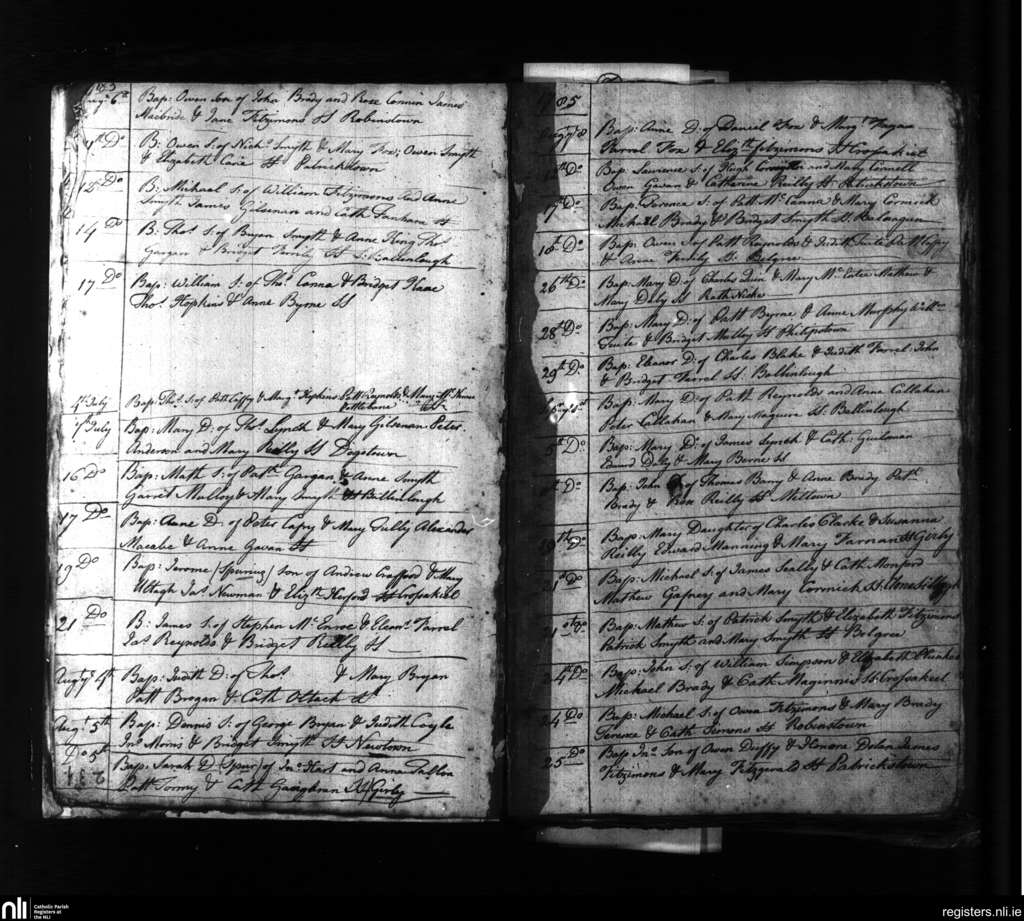 Augt 6th Bap: Owen Son of John Brady and Rose Connin James
Macbride & Jane Fitzimons SS Robenstown
Do B: Owen S: of Nichs Smyth & Mary Fox; Owen Smyth
& Elizabeth SS Patrickstown
12 Do B: Michael S: of William Fitzimons And Anne
Smyth James Gilsenan and Cath Farnham SS
14 Do B: Thos S: of Bryan Smyth & Anne King Thos
Gargan & Bridget SS: Ballenlough
17 Do Bap: William S: of Thos Canna & Bridget Kaae
Thos Hopkins & Anne Byrne SS
4 July Bap: Thos S: of Patt Caffy & Margt Hopkins Patt Raynolds & Mary
Kettlebone SS
July Bap: Mary D: of Thos Lynch & Mary Gilsenan Peter
Anderson and Mary Reilly SS Dogstown
16 Do Bap: Math S: of Patk Gargan & Anne Smyth
Garret Mulloy & Mary Smyth SS Billinlough
17 Do Bap: Anne D: of Peter Capry & Mary Tully Alexander
Macabe & Anne Gavan SS
19 Do Bap: Jerome (Spurius) Son of Andrew Crafford & Mary
Ultagh Jas Newman & Elizth SS Crosakeel
21 Do B: James S: of Stephen Mc Enroe & Eleanr Farrel
Jas Reynolds & Bridget Reilly SS
Augt ye 4th Bap: Judith D: of Thos & Mary Bryan
Patt Brogan & Cath Oltach SS
Augt 5th Bap: Dennis S: of George Bryan & Judith Coyle
Jno Morris & Bridget Smyth SS Newtown
Do 5th Bap: Sarah D (Spur) of Jno Hart and Anna Fallon
Patt Tormy & Cath Gaughran SS Girly
85
Bap: Anne D: of Daniel Fox & Margt Fagan
Farrel Fox & Elizth Fitzimons SS Crosakeel
Do Bap Lawrence S: of Hugh and Mary Connell
Owen Gavan & Catharine Reilly SS Patrickstown
Do Bap: Terence S: of Patt Mc Canna & Mary Cormick
Michael Brady & Bridget Smyth SS Balangin
16th Do Bap: Owen S of Patt Reynolds & Judith
& Anne SS Belgree
26th Do Bap: Mary D: of Charles & Mary Mathew &
Mary Daly SS Rath
28th Do Bap: Mary D: of Patt Byrne & Anne Murphy Willm
Tuite & Bridget Mulloy SS Philipstown
29th Do Bap: Eleanor D: of Charles Blake & Judith Farrel John
& Bridget Farrel SS: Ballinlough
Bap: Mary D: of Patt Reynolds and Anne Callahan
Peter Callahan & Mary Maguire SS Ballinlough
5th Do Bap: Mary D: of James Lynch & Cath: Guilsenan
Daly & Mary Berne SS
Do Bap: John S of Thomas Barry & Anne Brady Patk
Brady & Rose Reilly SS Miltown
Do Bap: Mary Daughter of Charles Clarke & Susanna
Reilly Edward Manning & Mary Farnan SS Girly
Do Bap: Michael S: of James Sealy & Cath Monford
Mathew Gafney and Mary Cormick SS:
Bap: Mathew S: of Patrick Smyth & Elizabeth Fitzimons
Patrick Smyth and Mary Smyth SS Belgree
24th Do Bap: John S: of William Simpson & Elizabeth
Michael Brady & Cath Maginnis SS: Crosakeel
24 Do Bap: Michael S: of Owen Fitzimons & Mary Brady
Terence & Cath Semons SS Robenstown
25 Do Bap Jno Son of Owen Duffy & Honore Dolan James
Fitzimons & Mary Fitzgerald SS Patrickstown
nli
Catholic Parish
Registers at
the NLI
registers.nli.ie